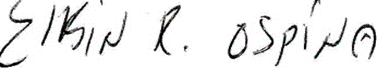 Elkin R. Ospina